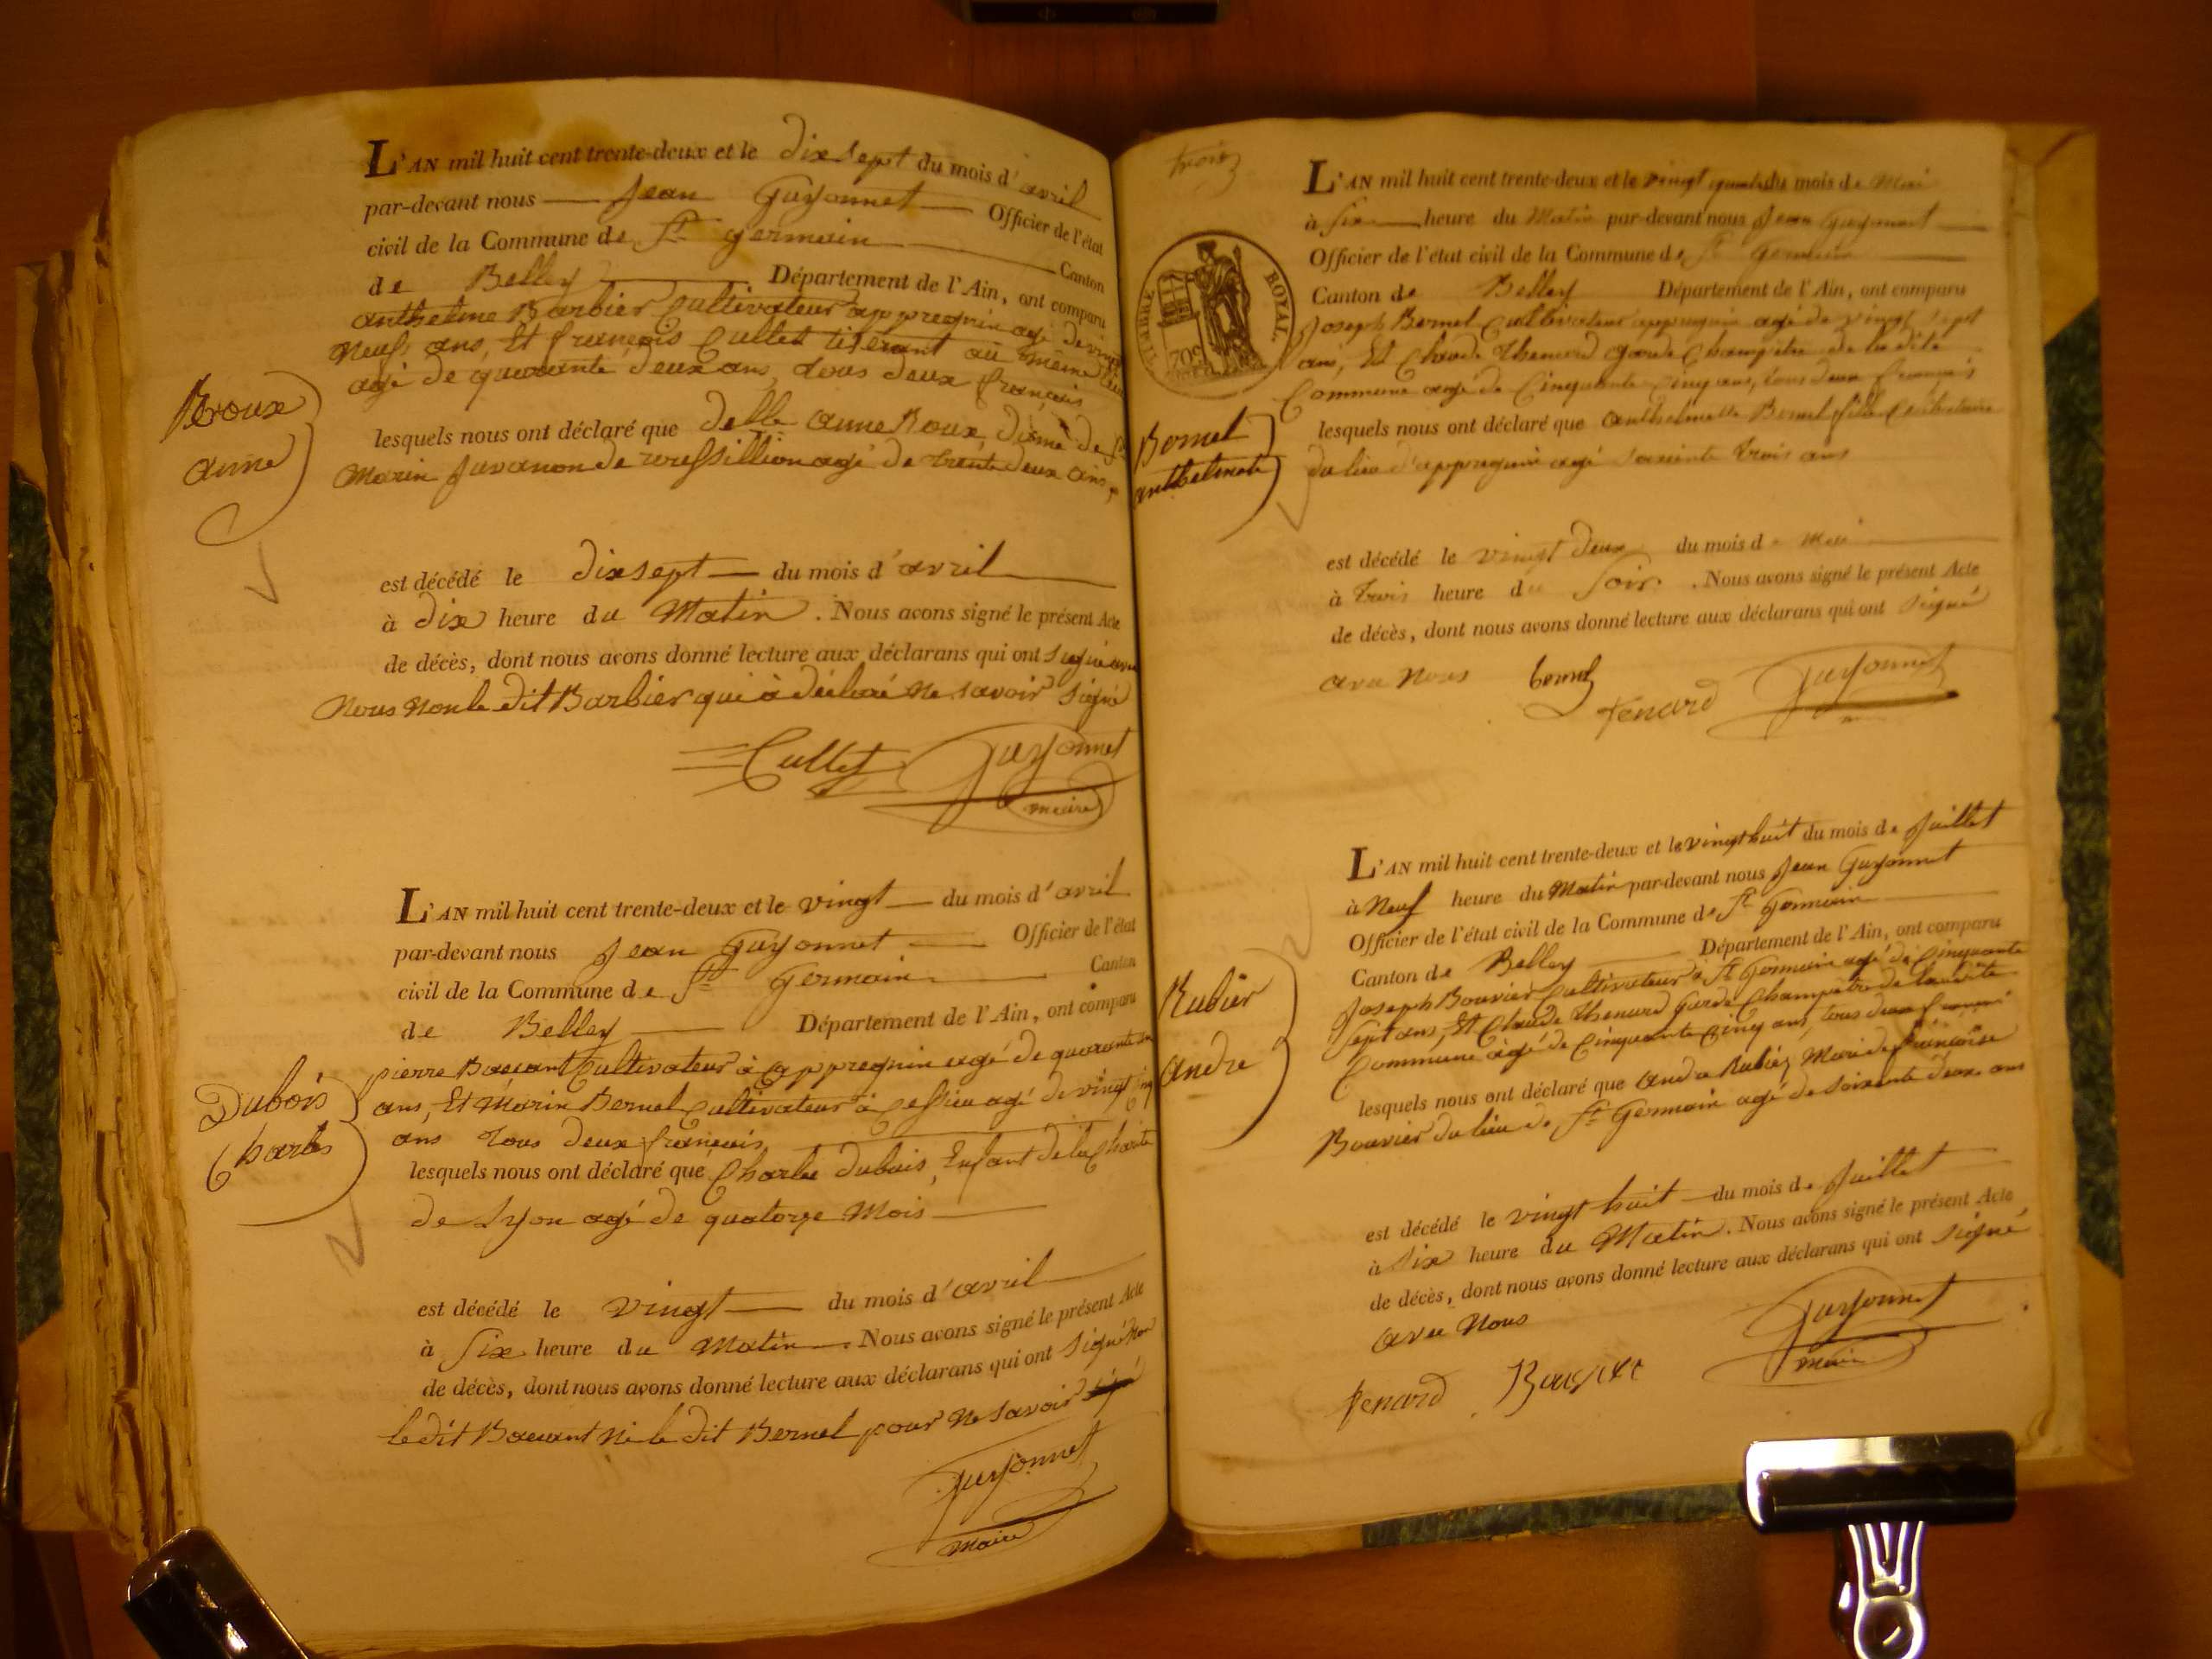 L'AN mil huit cent trente-deux et le dix sept du mois d'avril
par-devant nous Jean Guyonnet Officier de l'état
civil de la Commune de St germain Canton
de Belley Département de l'Ain, ont comparu
anthelme Barbier Cultivateur appregnin agé de vingt
Neuf ans, Et francois Cullet tiserant au même lieu
agé de quarante deux ans, tous deux francais
Roux
anne
lesquels nous ont déclaré que delle anne Roux, de
Marin Juvanon de roussillion agé de trente deux ans,
est décédé le dix sept du mois d'avril
à dix heure du Matin . Nous avons signé le présent Acte
de décès, dont nous avons donné lecture aux déclarans qui ont signé avec
Nous Non le dit Barbier qui à déclaré Ne savoir signé
Cullet Guyonnet
maire
L'AN mil huit cent trente-deux et le vingt du mois d'avril
par-devant nous Jean Guyonnet Officier de l'état
civil de la Commune de St germain Canton
de Belley Département de l'Ain, ont comparu
pierre Cultivateur à appregnin agé de quarante
ans, Et Marin Bernel Cultivateur à Cessieu agé de vingt cinq
Dubois
Charles
ans tous deux francais
lesquels nous ont déclaré que Charles dubois, Enfant de la Charité
de Lyon agé de quatorze Mois
est décédé le vingt du mois d'avril
à Six heure du Matin . Nous avons signé le présent Acte
de décès, dont nous avons donné lecture aux déclarans qui ont signé Non
le dit Ni le dit Bernel pour Ne savoir
Guyonnet
Maire
trois
TIMBRE ROYAL
70c
L'AN mil huit cent trente-deux et le vingt quatre du mois de Mai
à Six heure du Matin par-devant nous Jean Guyonnet
Officier de l'état civil de la Commune de St Germain
Canton de Belley Département de l'Ain, ont comparu
Joseph Bernel Cultivateur appregnin agé de vingt sept
ans, Et Claude Thenard garde Champêtre de la dite
Commune agé de Cinquante Cinq ans, tous deux francais
Bernel
anthelmette
lesquels nous ont déclaré que anthelmette Bernel fille Celibataire
du lieu d'appregnin agé soixante trois ans
est décédé le vingt deux du mois de Mai
à trois heure du Soir . Nous avons signé le présent Acte
de décès, dont nous avons donné lecture aux déclarans qui ont signé
avec Nous bernel fenard Guyonnet
L'AN mil huit cent trente-deux et le vingt huit du mois de Juillet
à Neuf heure du Matin par-devant nous Jean Guyonnet
Officier de l'état civil de la Commune de St Germain
Canton de Belley Département de l'Ain, ont comparu
Joseph Bouvier Cultivateur à St Germain agé de Cinquante
Sept ans, Et Claude Thenard Garde Champêtre de la dite
Commune agé de Cinquante Cinq ans, tous deux francais
Rubier
andre
lesquels nous ont déclaré que andre Rubier Mari de francoise
Bouvier du lieu de St Germain agé de Soixante deux ans
est décédé le vingt huit du mois de Juillet
à Six heure du Matin . Nous avons signé le présent Acte
de décès, dont nous avons donné lecture aux déclarans qui ont signé
avec Nous
Guyonnet
maire
fenard Bouvier